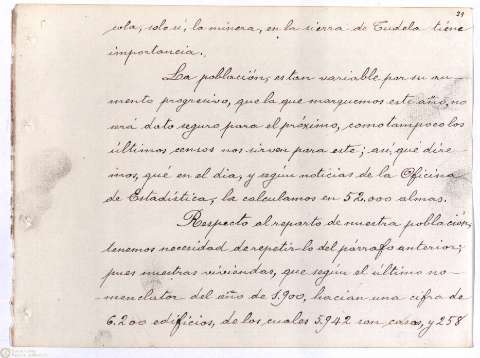 29
cola; solo sí, la minera, en la sierra de Tudela tiene
importancia.
La población, es tan variable por su au-
mento progresivo, que la que marquemos este año, no
será dato seguro para el próximo, como tampoco los
últimos censos nos sirven para este; así, qué dire-
mos, qué en el dia, y según noticias de la Oficina
de Estadística, la calculamos en 52.000 almas.
Respecto al reparto de nuestra población,
tenemos necesidad de repetir lo del párrafo anterior;
pues nuestras viviendas, que según el último no-
menclator del año de 1.900, hacían una cifra de
6.200 edificios, de los cuales 5.942 son casas, y 258